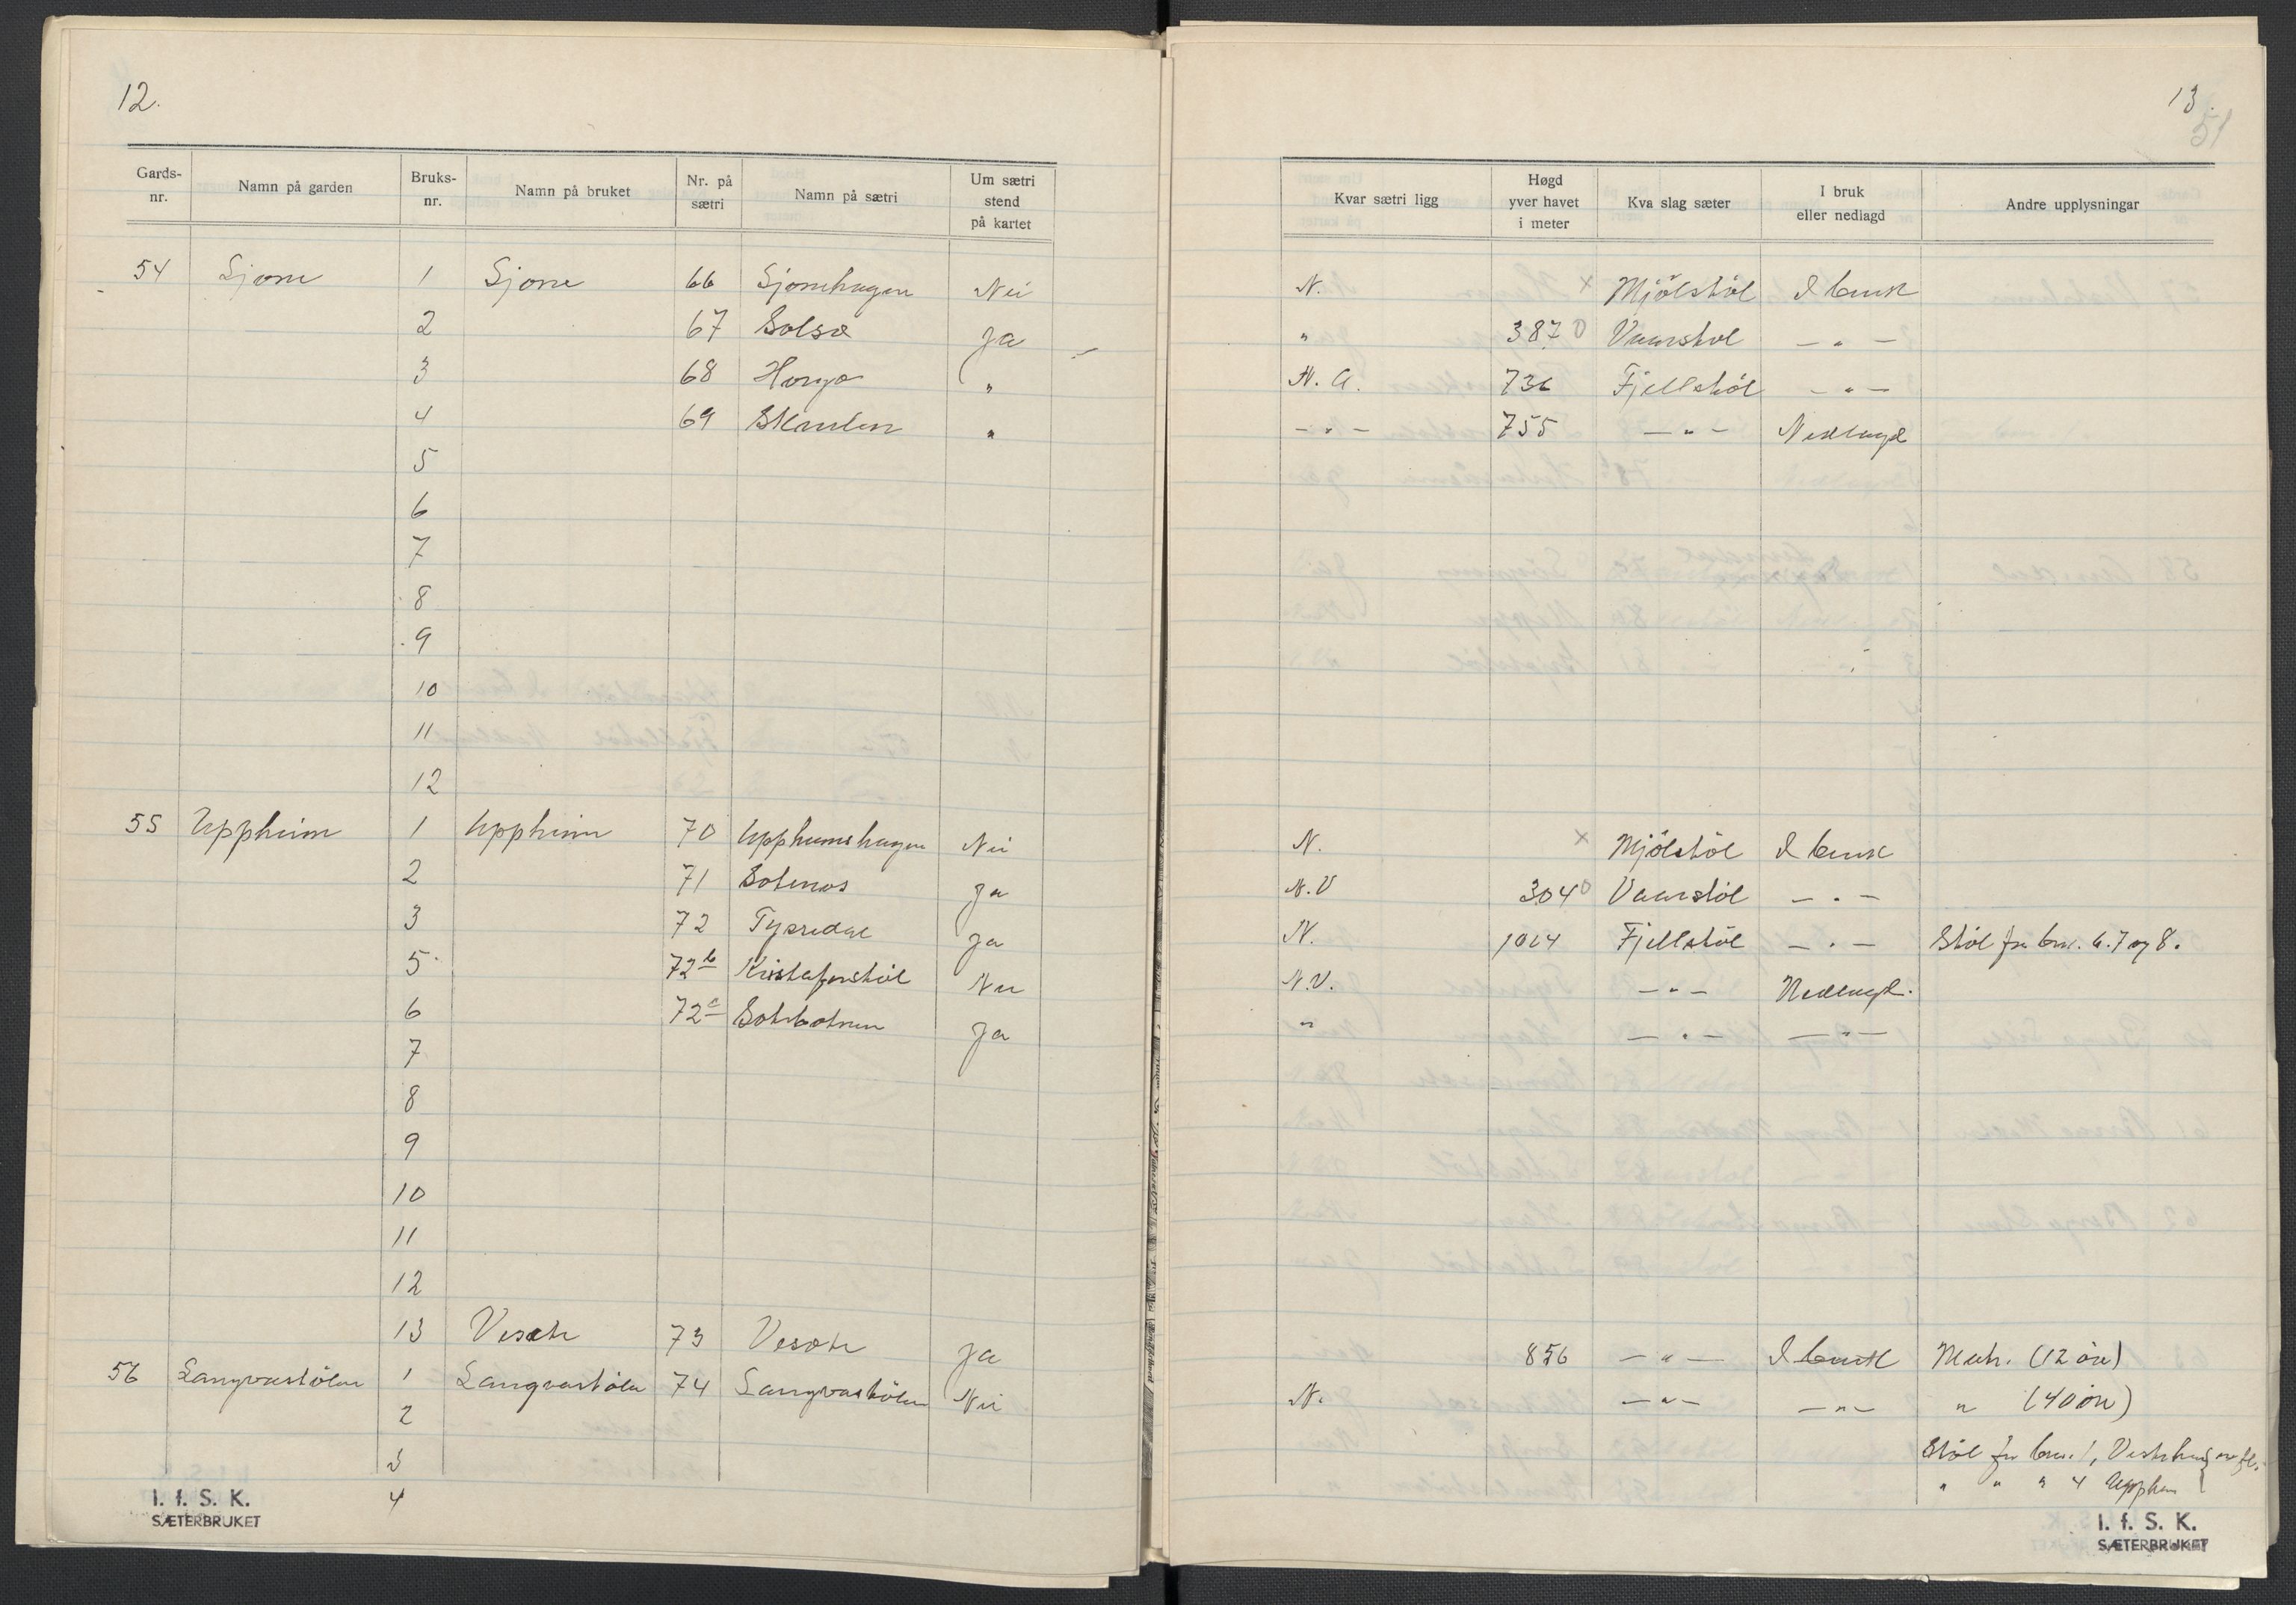 12.
Gards-nr. Namn på garden Bruks-nr. Namn på bruket Nr. på sætri Namn på sætri Um sætri stend på kartet
54 Sjone 1 Sjone 66 Sjonehagen Nei
2 67 Solsæ Ja
3 68 Horgo "
4 69 Skaulen "
5
6
7
8
9
10
11
12
55 Uppheim 1 Uppheim 70 Uppheimshagen Nei
2 71 Sotenos Ja
3 72 Tysredal Ja
5 72b Kristoferstöl Nei
6 72c Sotebotnen Ja
7
8
9
10
11
12
13 Vesæte 73 Vesæte Ja
56 Langvastölen 1 Langvastölen 74 Langvastölen Nei
2
3
4
I. f. S. K.
SÆTERBRUKET
13.
51
Kvar sætri ligg Høgd yver havet i meter Kva slag sæter I bruk eller nedlagd Andre upplysningar
N. x Mjölstöl I bruk
" 387 0 Vaarstöl — " —
N. A. 736 Fjellstöl — " —
— " — 755 — " — Nedlagd
N. x Mjölstöl I bruk
N.V 304 0 Vaarstöl — " —
N. 1014 Fjellstöl — " — Stöl fra brn. 6.7 og 8.
N.V. — " — Nedlagd.
" — " — — " —
856 — " — I bruk Matr. (12 öre)
N. — " — — " — " (40 öre)
Stöl for brn. 1,
" " " 4 Upphem
I. f. S. K.
SÆTERBRUKET